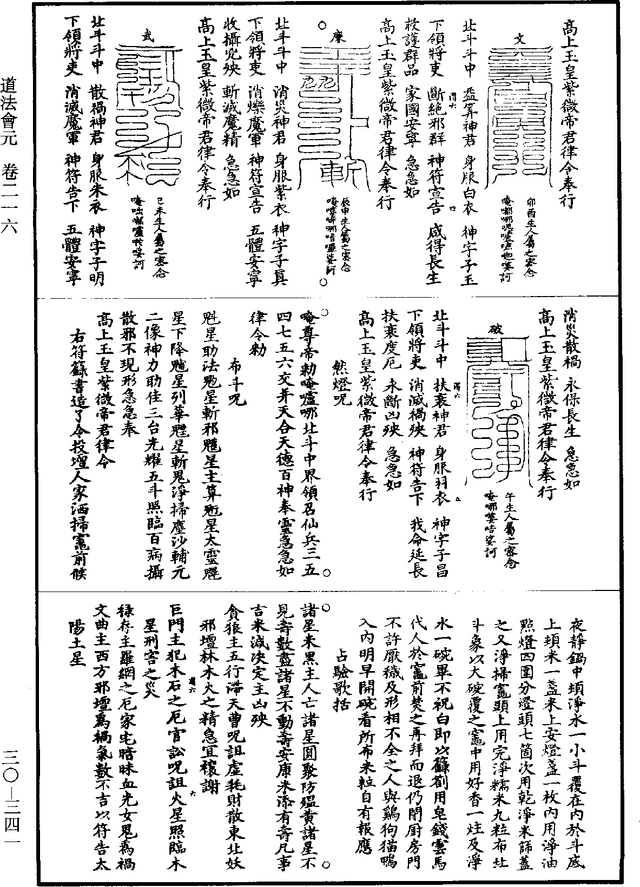 高上玉皇紫微帝君律令奉行
文
卯酉生人屬之密念
北斗斗中 益算神君 身服白衣 神字子玉
下領將吏 斷絕邪群 神符宣告 咸得長生
救護群品 家國安寧 急急如
高上玉皇紫微帝君律令奉行
廉
辰申生人屬之密念
北斗斗中 消災神君 身服紫衣 神字子真
下領將吏 消爍魔軍 神符宣告 五體安寧
收攝冤殃 斬滅魔精 急急如
高上玉皇紫微帝君律令奉行
武
己未生人屬之密念
北斗斗中 散禍神君 身服朱衣 神字子明
下領將吏 消滅魔軍 神符告下 五體安寧
消災散禍 永保長生 急急如
高上玉皇紫微帝君律令奉行
破
午生人屬之密念
北斗斗中 扶衰神君 身服羽衣 神字子昌
下領將吏 消滅禍殃 神符告下 我命延長
扶衰度厄 永斷凶殃 急急如
高上玉皇紫微帝君律令奉行
然燈呪
唵尊帝勅唵嚧哪北斗中界領召仙兵三五
四七五六交并天合天德百神奉靈急急如
律令勅
布斗呪
魁星助法魁星斬邪魓星主算魁星太靈魓
星下降魓星列華魓星斬鬼淨掃塵沙輔元
二像神力助佐三台光耀五斗照臨百病攝
散邪不現形急急奉
高上玉皇紫微帝君律令
右符籙書造了令投壇人家洒掃竈前候
夜靜鍋中頓淨水一小斗覆在內於斗底
上頓米一盞米上安燈盞一枚內用淨油
點燈四圍分燈頭七箇次用乾淨米篩蓋
之又淨掃竈頭上用完淨糯米九粒布北
斗象以大碗覆之竈中用好香一炷及淨
水一碗畢不祝白即以籙劄用皂錢雲馬
代人於竈前焚之再拜而退仍閉厨房門
不許厭穢及形相不全之人與鷄狗猫鴨
入內明早開碗看所布米粒自有報應
占驗歌括
諸星來黑主人亡諸星圓聚防瘟黃諸星不
見壽數盡諸星不動壽安康米添有壽凡事
吉米減决定主凶殃
貪狼主五行濡天曹呪詛虛耗財散東北妖
邪壇林木火之精急宜禳謝
巨門主犯木石之厄官訟呪詛火星照臨木
星刑害之災
祿存主羅網之厄家宅暗昧血光女鬼為禍
文曲主西方邪壇爲禍氣數不吉以符告太
陽土星
道法會元 卷二一六
三〇—三四一